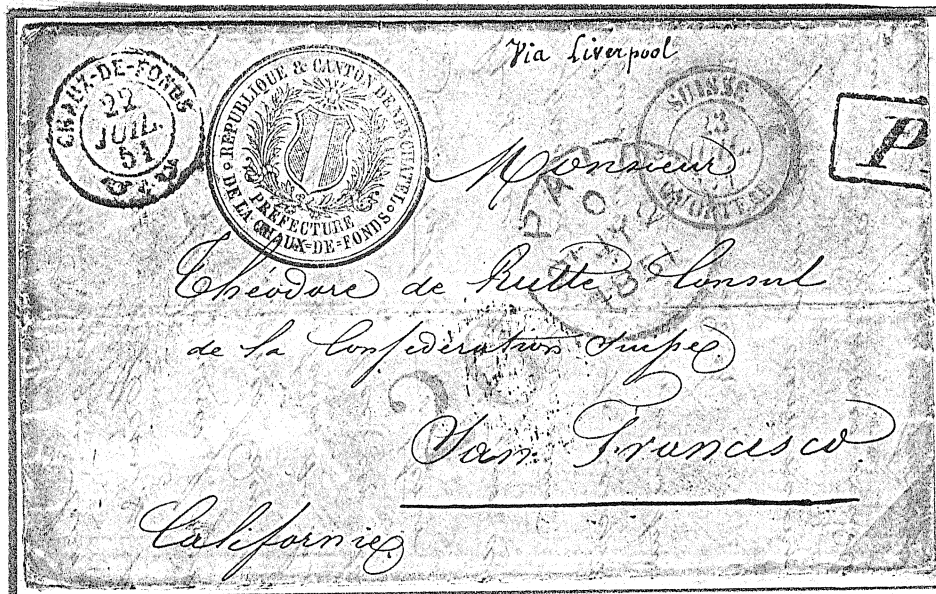 Via Liverpool
CHAUX-DE-FONDS
22
JUIL.
51
REPUBLIQUE & CANTON DE NEUCHATEL
PRÉFECTURE
DE LA CHAUX-DE-FONDS
SUISSE
23
MORTEAU
P
PAID
Monsieur
Théodore de Rutte Consul
de la Confédération Suisse
San Francisco
Californie